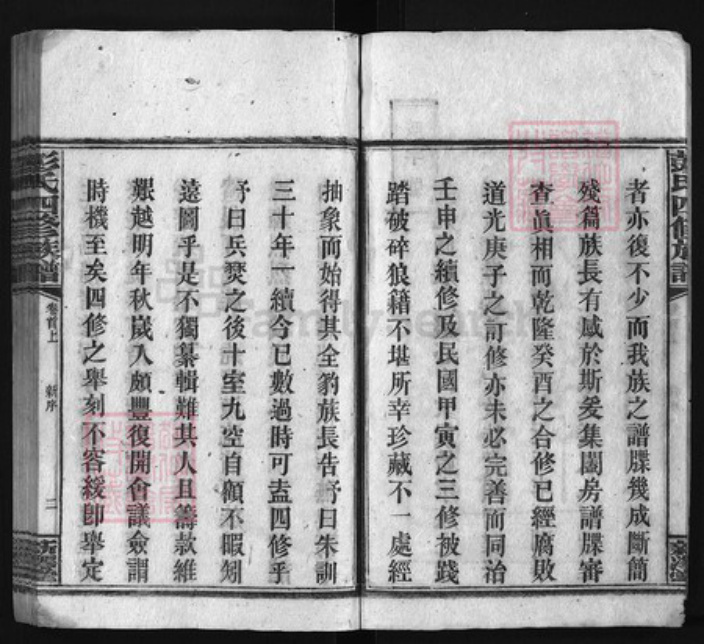 者亦復不少而我族之譜牒幾成斷簡
殘篇族長有感於斯爰集闔房譜牒審
查眞相而乾隆癸酉之合修已經腐敗
道光庚子之訂修亦未必完善而同治
壬申之續修及民國甲寅之三修被踐
踏破碎狼籍不堪所幸珍藏不一處經
抽象而始得其全豹族長告予曰朱訓
三十年一續今已數過時可盍四修乎
予曰兵燹之後十室九空自顧不暇矧
遠圖乎是不獨纂輯難其人且籌款維
艱越明年秋歲入頗豐復開會議僉謂
時機至矣四修之舉刻不容緩卽舉定
彭氏四修族譜
卷首上
新序
三
彭氏四修族譜
FamilySearch